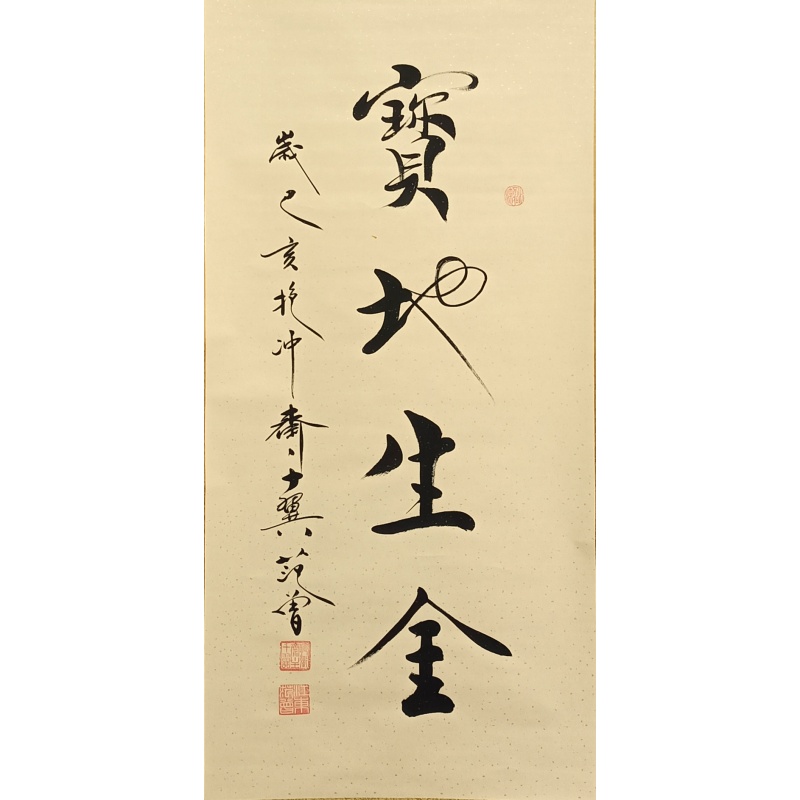 寶地生金
歲己亥抱冲齋十翼范曾